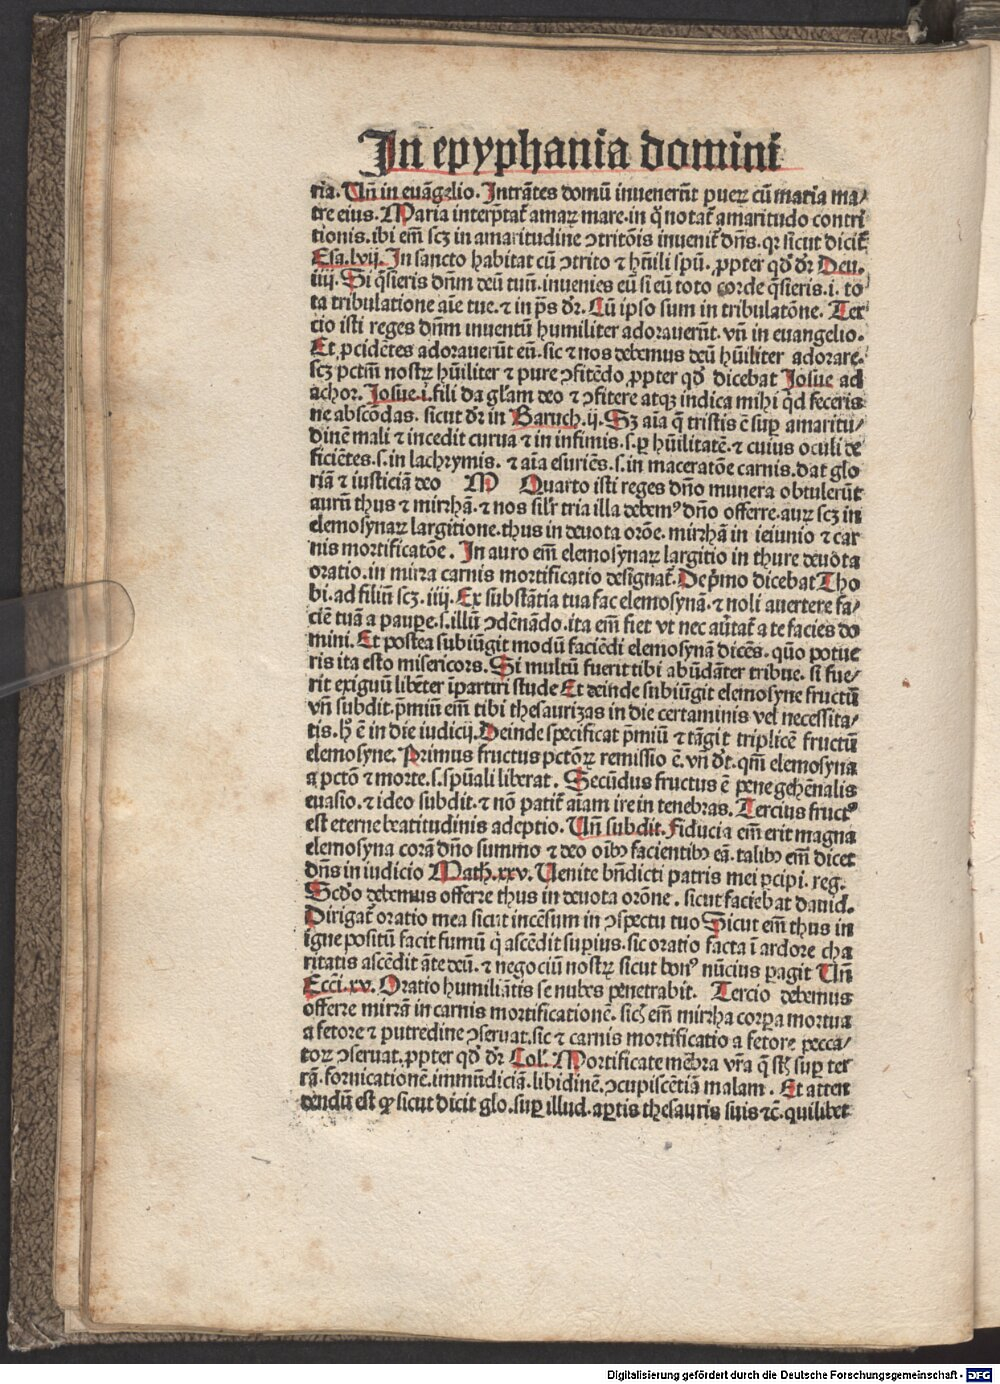 In epyphania domini
ria. Vñ in euãgelio. Intrãtes domũ inuenerũt pueꝝ cũ maria ma/
tre eius. Maria interp̃tat̃ amaꝝ mare. in q̃ notat̃ amaritudo contri
tionis. ibi em̃ scꝫ in amaritudine ↄtritõis inuenit̃ dñs. qꝛ sicut dicit̃
Esa. lvij. In sancto habitat cũ ↄtrito ⁊ hũili spũ. ꝓpter qd̃ dr̃ Deu.
iiij. Si q̃sieris dñm deũ tuũ. inuenies eũ si eũ toto corde q̃sieris. i. to
ta tribulatione aĩe tue. ⁊ in p̃s dr̃. Cũ ipso sum in tribulatõne. Ter
cio isti reges dñm inuentũ humiliter adorauerũt. vñ in euangelio.
Et ꝓcidẽtes adorauerũt eũ. sic ⁊ nos debemus deũ hũiliter adorare.
scꝫ pctm̃ nostꝝ hũiliter ⁊ pure ↄfitẽdo ꝓpter qd̃ dicebat Josue ad
achor. Josue. i. fili da gl̃am deo ⁊ ↄfitere atqꝫ indica mihi qd̃ feceris
ne abscõdas. sicut dr̃ in Baruch. ij. Sꝫ aĩa q̃ tristis ẽ suꝑ amaritu/
dinẽ mali ⁊ incedit curua ⁊ in infimis. s. ꝑ hũilitatẽ. ⁊ cuius oculi de
ficiẽtes. s. in lachrymis. ⁊ aĩa esuriẽs. s. in maceratõe carnis. dat glo
riã ⁊ iusticiã deo M Quarto isti reges dño munera obtulerũt
aurũ thus ⁊ mirrhã. ⁊ nos sil̃r tria illa debemꝰ dño offerre. auꝝ scꝫ in
elemosynaꝝ largitione. thus in deuota orõe. mirrhã in ieiunio ⁊ car
nis mortificatõe. In auro em̃ elemosynaꝝ largitio in thure deuota
oratio. in mirra carnis mortificatio designat̃. De p̃mo dicebat Tho
bi. ad filiũ scꝫ. iiij. Ex substãtia tua fac elemosynã. ⁊ noli auertere fa/
ciẽ tuã a pauꝑe. s. illũ ↄdẽnãdo. ita em̃ fiet vt nec au̾tat̃ a te facies do
mini. Et postea subiũgit modũ faciẽdi elemosynã dicẽs. quõ potue
ris ita esto misericors. Si multũ fuerit tibi abũdãter tribue. si fue/
rit exiguũ libẽter ĩpartiri stude Et deinde subiũgit elemosyne fructũ
vñ subdit. p̃miũ em̃ tibi thesaurizas in die certaminis vel necessita/
tis. h̾ ẽ in die iudicij. Deinde specificat p̃miũ ⁊ tãgit triplicẽ fructũ
elemosyne. Primus fructus pctõꝝ remissio ẽ. vñ dr̃. qm̃ elemosyna
a pctõ ⁊ morte. s. spũali liberat. Secũdus fructus ẽ pene gehẽnalis
euasio. ⁊ ideo subdit. ⁊ nõ patit̃ aĩam ire in tenebras. Tercius fructꝰ
est eterne beatitudinis adeptio. Vñ subdit. Fiducia em̃ erit magna
elemosyna corã dño summo ⁊ deo oĩbꝰ facientibꝰ eã. talibꝰ em̃ dicet
dñs in iudicio Math. xxv. Uenite bñdicti patris mei ꝑcipi. reg.
Scdõ debemus offerre thus in deuota orõne. sicut faciebat dauid.
Dirigat̃ oratio mea sicut incẽsum in ↄspectu tuo Sicut em̃ thus in
igne positũ facit fumũ q̃ ascẽdit superius. sic oratio facta ĩ ardore cha
ritatis ascẽdit ãte deũ. ⁊ negociũ nostꝝ sicut bonꝰ nũcius ꝑagit Vñ
Ecci. xv. Oratio humiliãtis se nubes penetrabit. Tercio debemus
offerre mirrã in carnis mortificationẽ. sic̃ em̃ mirrha corꝑa mortua
a fetore ⁊ putredine ↄseruat. sic ⁊ carnis mortificatio a fetore pecca/
toꝝ ↄseruat. ꝓpter qd̃ dr̃ Col̃. Mortificate mẽbra vr̃a q̃ st̃ suꝑ ter
rã. fornicationẽ. immũdiciã. libidinẽ. ↄcupiscẽtiã malam. Et atten
dendũ est qꝫ sicut dicit glo. suꝑ illud. aꝑtis thesauris suis ⁊c̃. quilibet
Digitalisierung gefördert durch die Deutsche Forschungsgemeinschaft - DFG